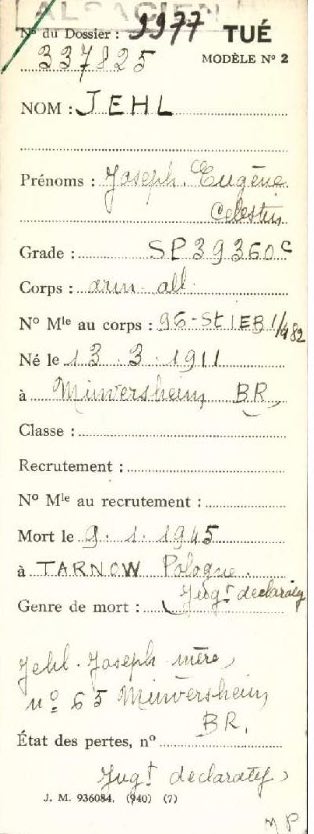 ALSACIEN
N° du Dossier : 9977 TUÉ
337825 MODÈLE N° 2
NOM : JEHL
Prénoms : Joseph. Eugène
Celestin
Grade : SP 39360 C
Corps : arm. all.
N° Mle au corps : 96-St IEB 1/482
Né le 13.3.1911
à Minversheim B.R.
Classe :
Recrutement :
N° Mle au recrutement :
Mort le 9.1.1945
à TARNOW Pologne.
Genre de mort : Jugt declaratif
Jehl Joseph mère,
n° 65 Minversheim
B.R.
État des pertes, n°
Jugt declaratif
J. M. 936084. (940) (7)
MP